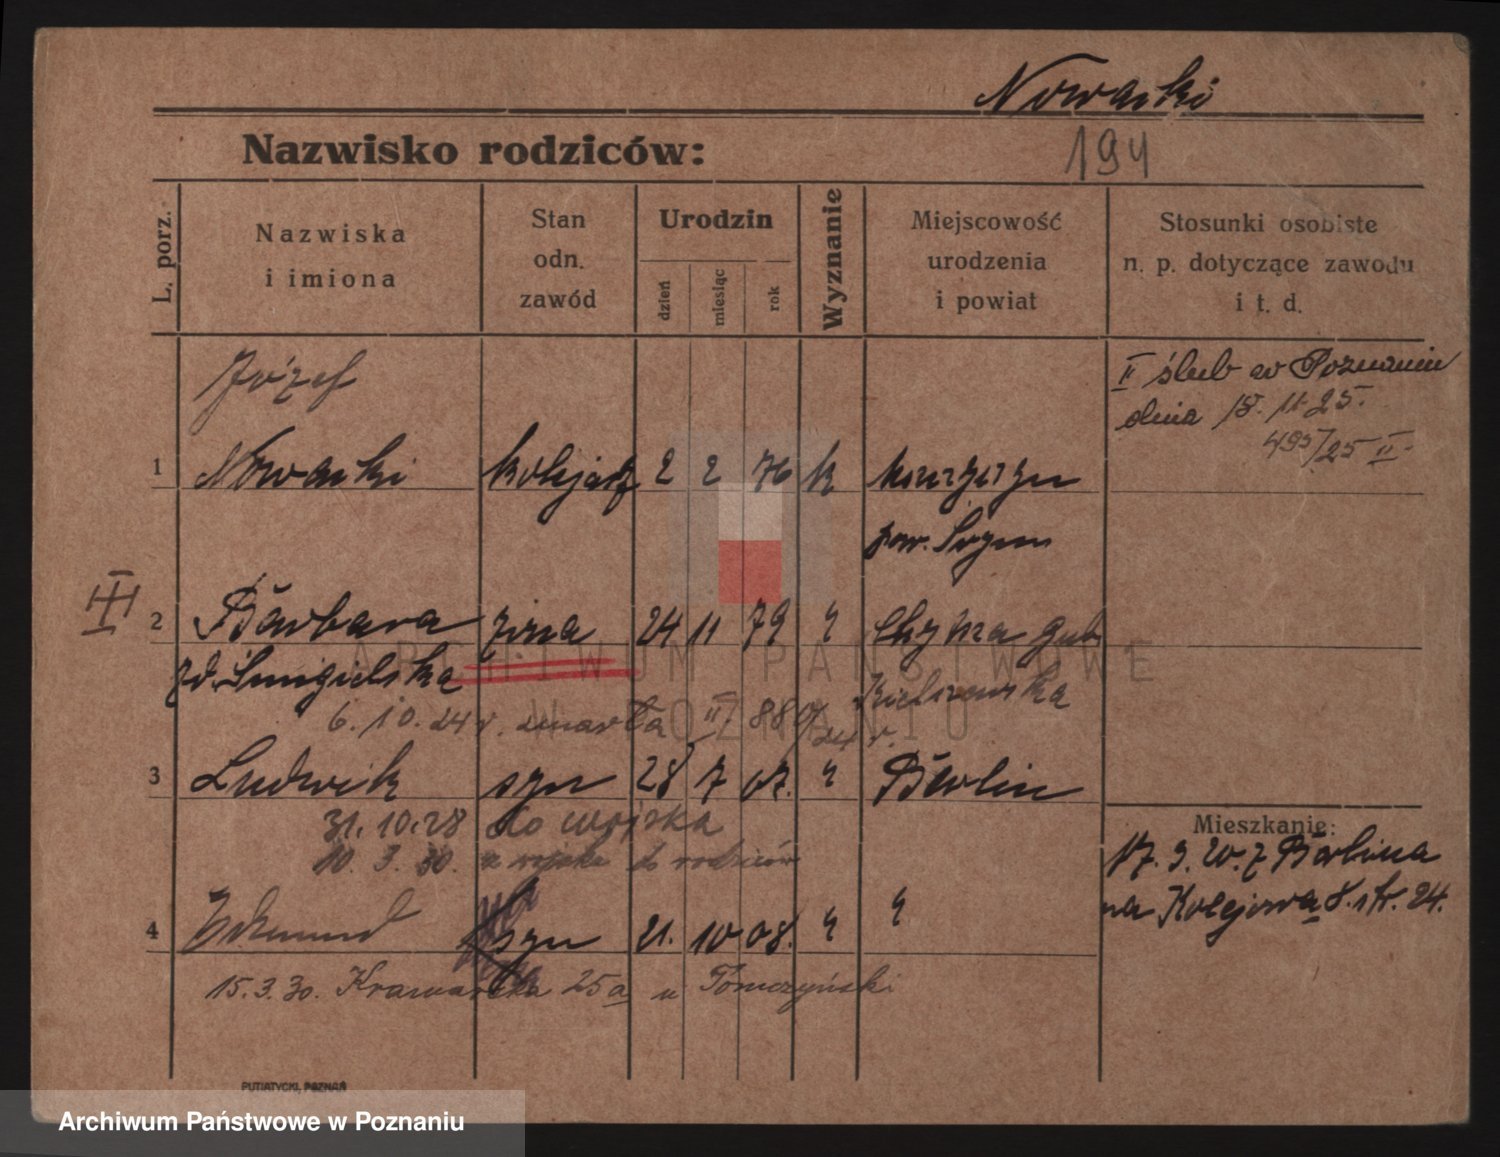 Nowacki
Nazwisko rodziców:
194
L. porz.
Nazwiska
i imiona
Stan
odn.
zawód
Urodzin
dzień
miesiąc
rok
Wyznanie
Miejscowość
urodzenia
i powiat
Stosunki osobiste
n. p. dotyczące zawodu
i t. d.
Józef
II ślub w Poznaniu
dnia 15. 11. 25.
495/25 II
1 Nowacki 2 2 76 k
pow. Śrem
III
2 Barbara żona 24 11 79 "
zd. Śmigielska
6. 10. 24 r. zmarła II/ 88 24 r.
3 Ludwik syn 28 7 07. " Berlin
31. 10. 28 do wojska
10. 3. 30. z wojska do rodziców
Mieszkanie:
17. 9. 20. z Berlina
na Kolejowa 8. 24.
4 Edmund syn 21. 10 08. " "
15. 3. 30. Krawarska 25a u Tomczyński
PUTIATYCKI, POZNAŃ
ARCHIWUM PAŃSTWOWE
W POZNANIU
Archiwum Państwowe w Poznaniu